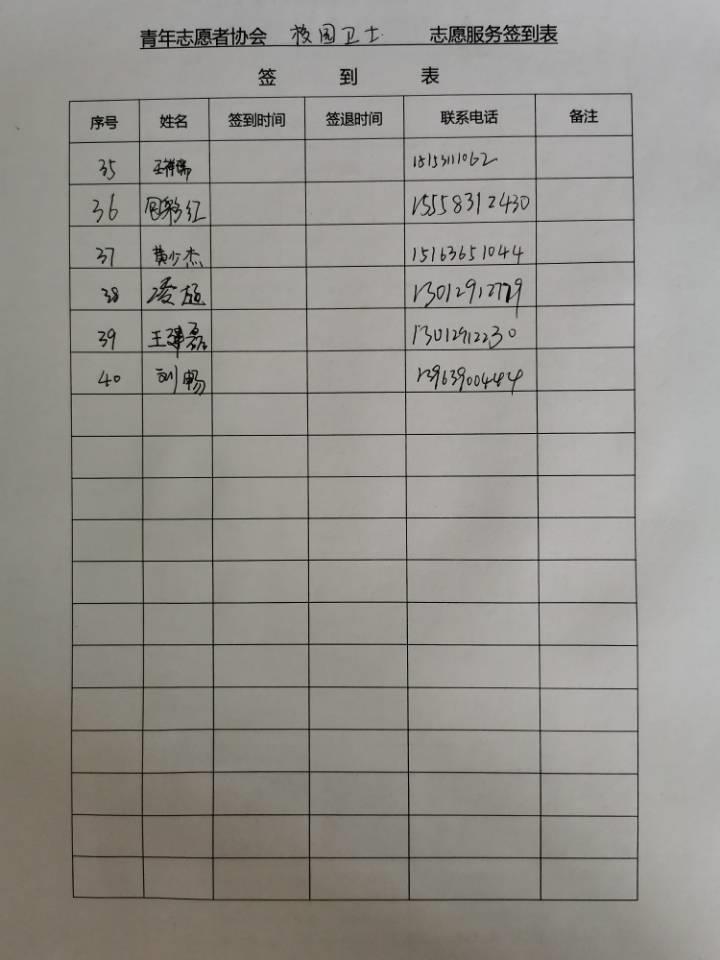 青年志愿者协会 校园卫士 志愿服务签到表
签 到 表
序号 姓名 签到时间 签退时间 联系电话 备注
35 王祥瑞 15153111062
36 彩红 15558312430
37 黄少杰 15163651044
38 凌超 13012912779
39 王建磊 13012912230
40 刘畅 13963900484